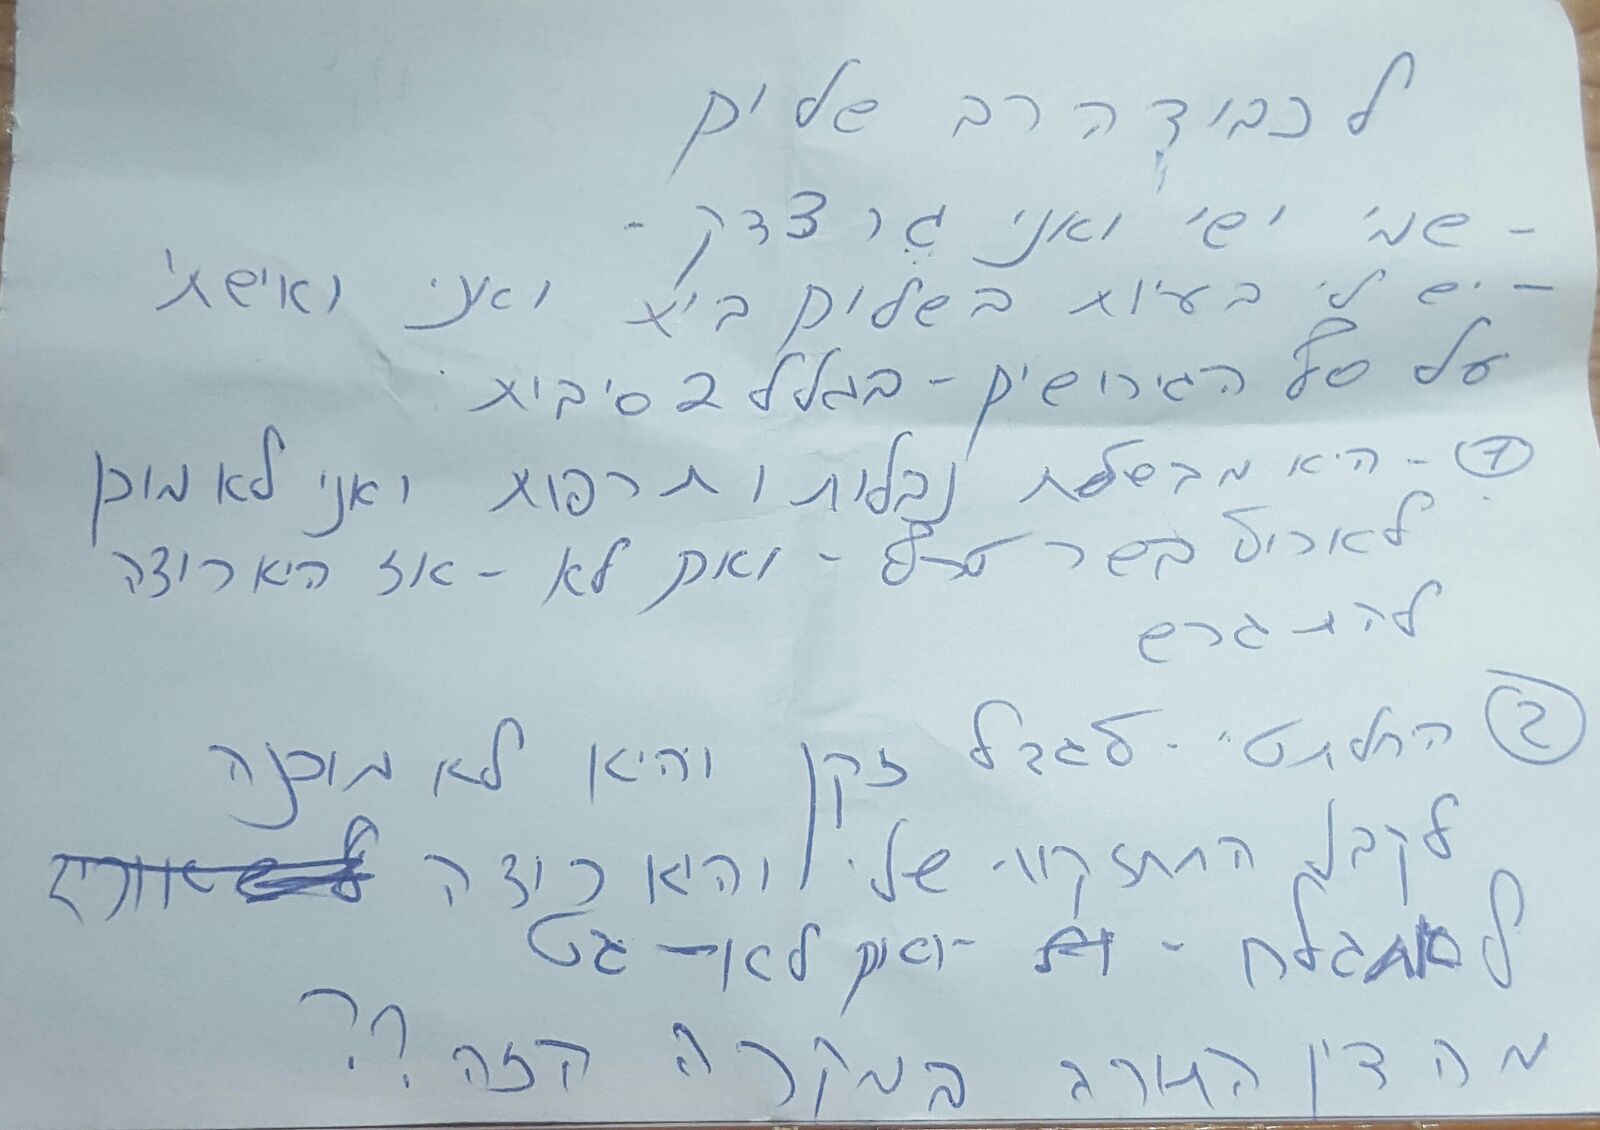 לכבוד הרב שלום
- שמי ישי ואני גר צדק -
- יש לי בעיות בשלום בית ואני ואישתי
על סף הגירושים - בגלל 2 סיבות:
1 - היא מבשלת נבלות ותרפות ואני לא מוכן
לארוס בשר טרף - ואם לא - אז היא רוצה
להתגרש
2 החלתטי - לגדל זקן והיא לא מוכנה
לקבל התחזקות שלי והיא רוצה
לגלח - ואם לא - גט
מה דין התורה במקרה הזה??